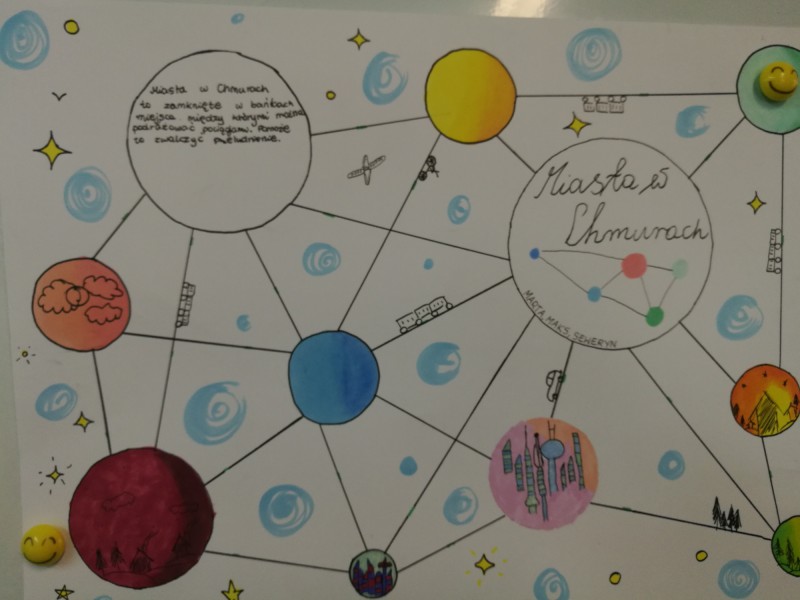 Miasta w Chmurach
to zamknięte w bańkach
miejsca między którymi można
podróżować pociągami. Pomoże
to zwalczyć przeludnienie.
Miasta w
Chmurach
MARTA, MAKS, SEWERYN